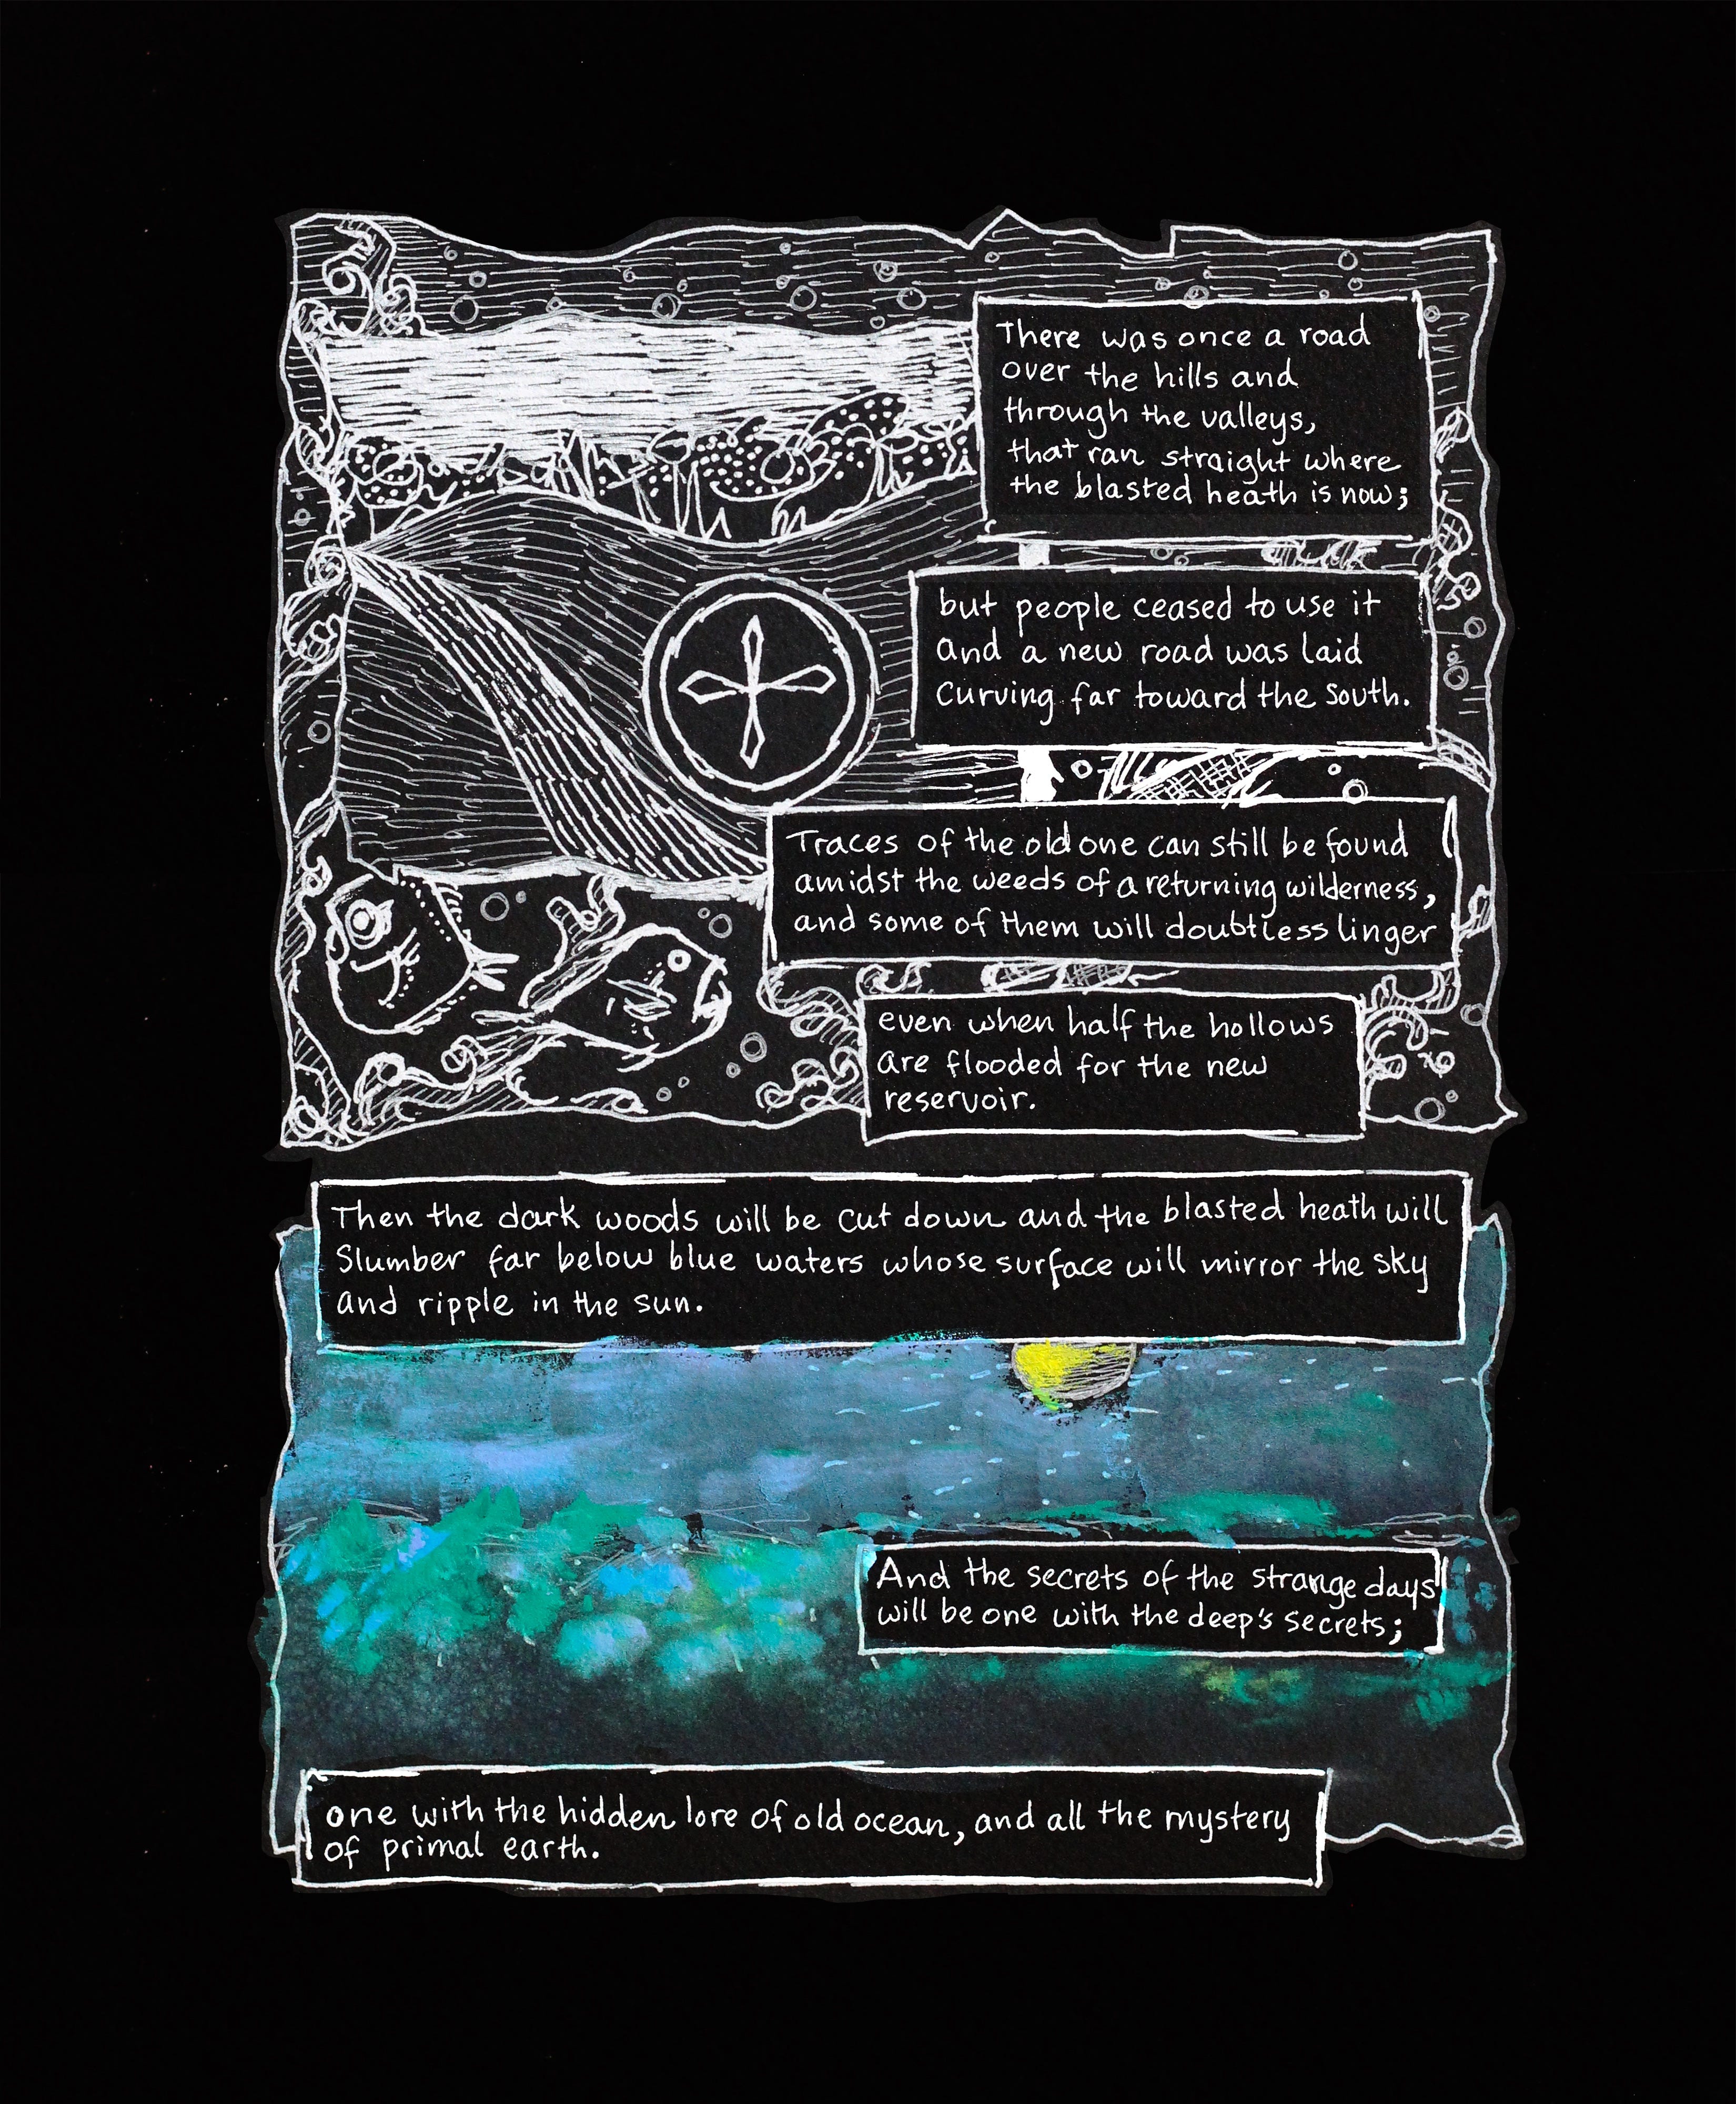 There was once a road
over the hills and
through the valleys,
that ran straight where
the blasted heath is now;
but people ceased to use it
and a new road was laid
curving far toward the south.
Traces of the old one can still be found
amidst the weeds of a returning wilderness,
and some of them will doubtless linger
even when half the hollows
are flooded for the new
reservoir.
Then the dark woods will be cut down and the blasted heath will
slumber far below blue waters whose surface will mirror the sky
and ripple in the sun.
And the secrets of the strange days
will be one with the deep's secrets;
one with the hidden lore of old ocean, and all the mystery
of primal earth.